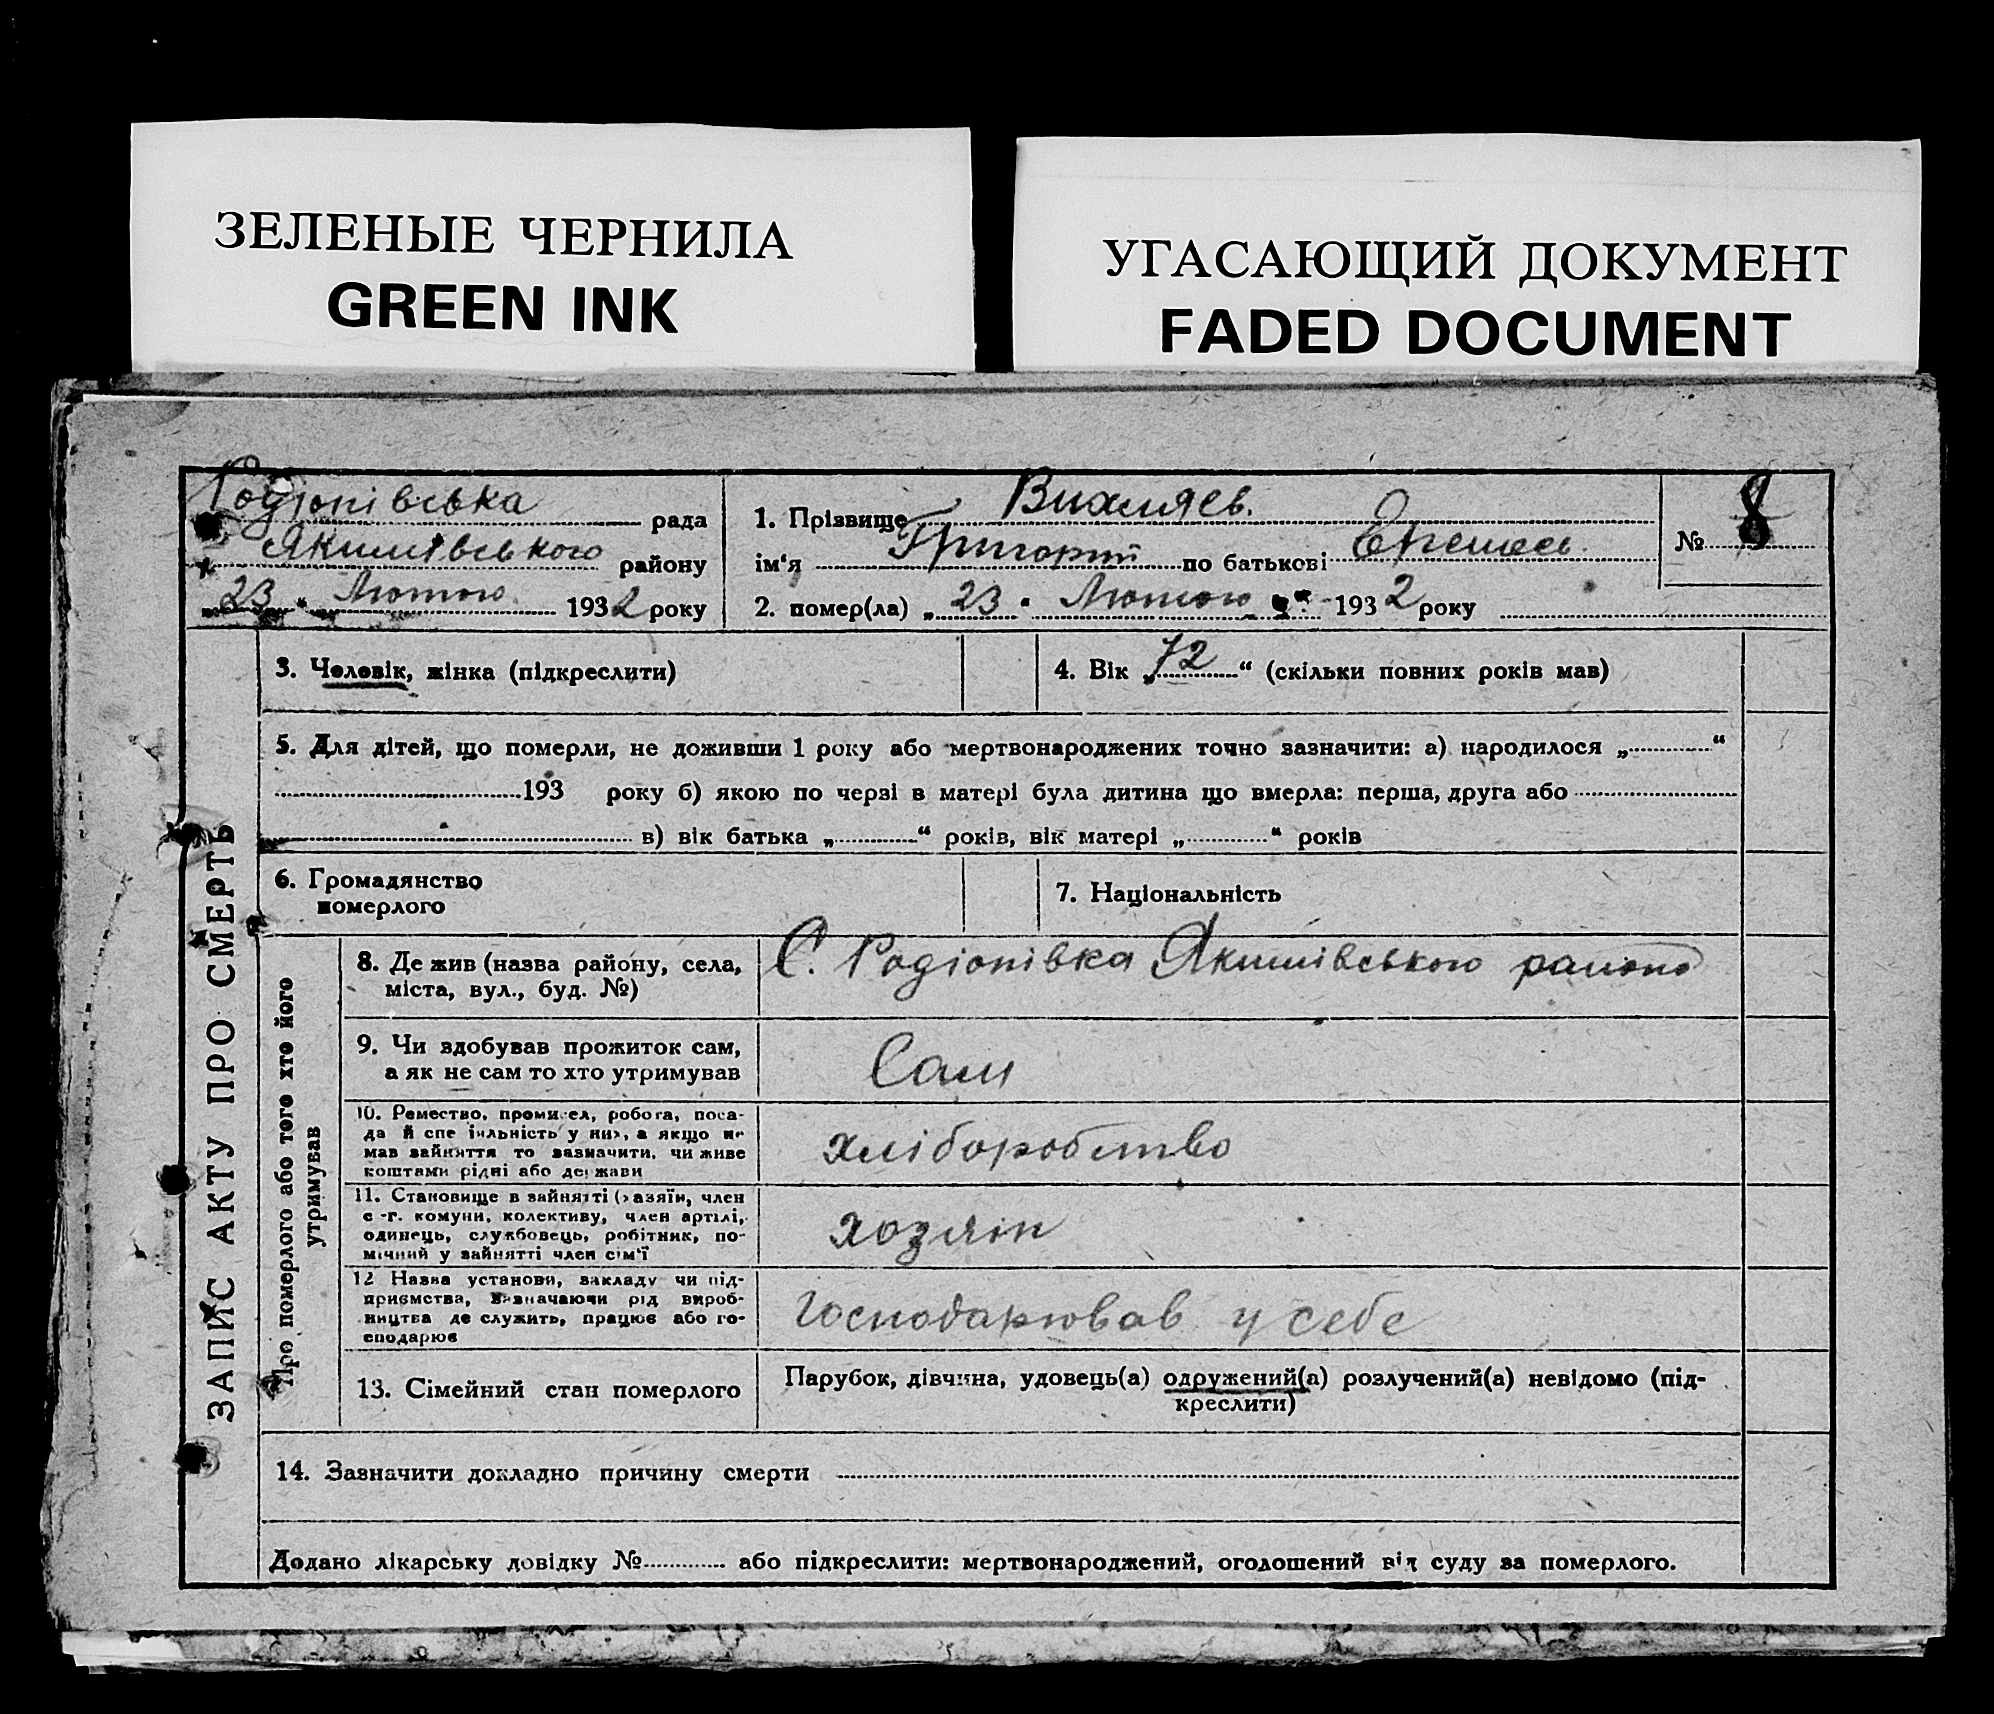 ЗЕЛЕНЫЕ ЧЕРНИЛА
GREEN INK
УГАСАЮЩИЙ ДОКУМЕНТ
FADED DOCUMENT
Родіонівська рада
Якимівського району
23 Лютого 1932 року
1. Прізвище Вихляев.
ім'я Григорій по батькові
2. помер(ла) „ 23 " Лютого 1932 року
№ 8
ЗАПИС АКТУ ПРО СМЕРТЬ
3. Чоловік, жінка (підкреслити)
4. Вік „ 72 “ (скільки повних років мав)
5. Для дітей, що померли, не доживши 1 року або мертвонароджених точно зазначити: а) народилося „ “
193 року б) якою по черзі в матері була дитина що вмерла: перша, друга або
в) вік батька „ “ років, вік матері „ “ років
6. Громадянство
померлого
7. Національність
Про померлого або того хто його
утримував
8. Де жив (назва району, села,
міста, вул., буд. №)
С. Родіонівка Якимівського району
9. Чи здобував прожиток сам,
а як не сам то хто утримував
Сам
10. Ремество, промисел, робота, поса-
да й спеціяльність у них, а якщо не
мав зайняття то зазначити, чи живе
коштами рідні або держави
хліборобство
11. Становище в зайнятті (хазяїн, член
с.-г. комуни, колективу, член артілі,
одинець, службовець, робітник, по-
мічний у зайнятті член сім'ї
хозяін
12 Назва установи, закладу чи під-
приємства, зазначаючи рід вироб-
ництва де служить, працює або го-
сподарює
Господарював у себе
13. Сімейний стан померлого
Парубок, дівчина, удовець(а) одружений(а) розлучений(а) невідомо (під-
креслити)
14. Зазначити докладно причину смерти
Додано лікарську довідку № або підкреслити: мертвонароджений, оголошений від суду за померлого.